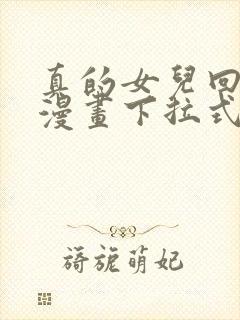 真的女兒回
漫畫下拉式
旖旎萌妃